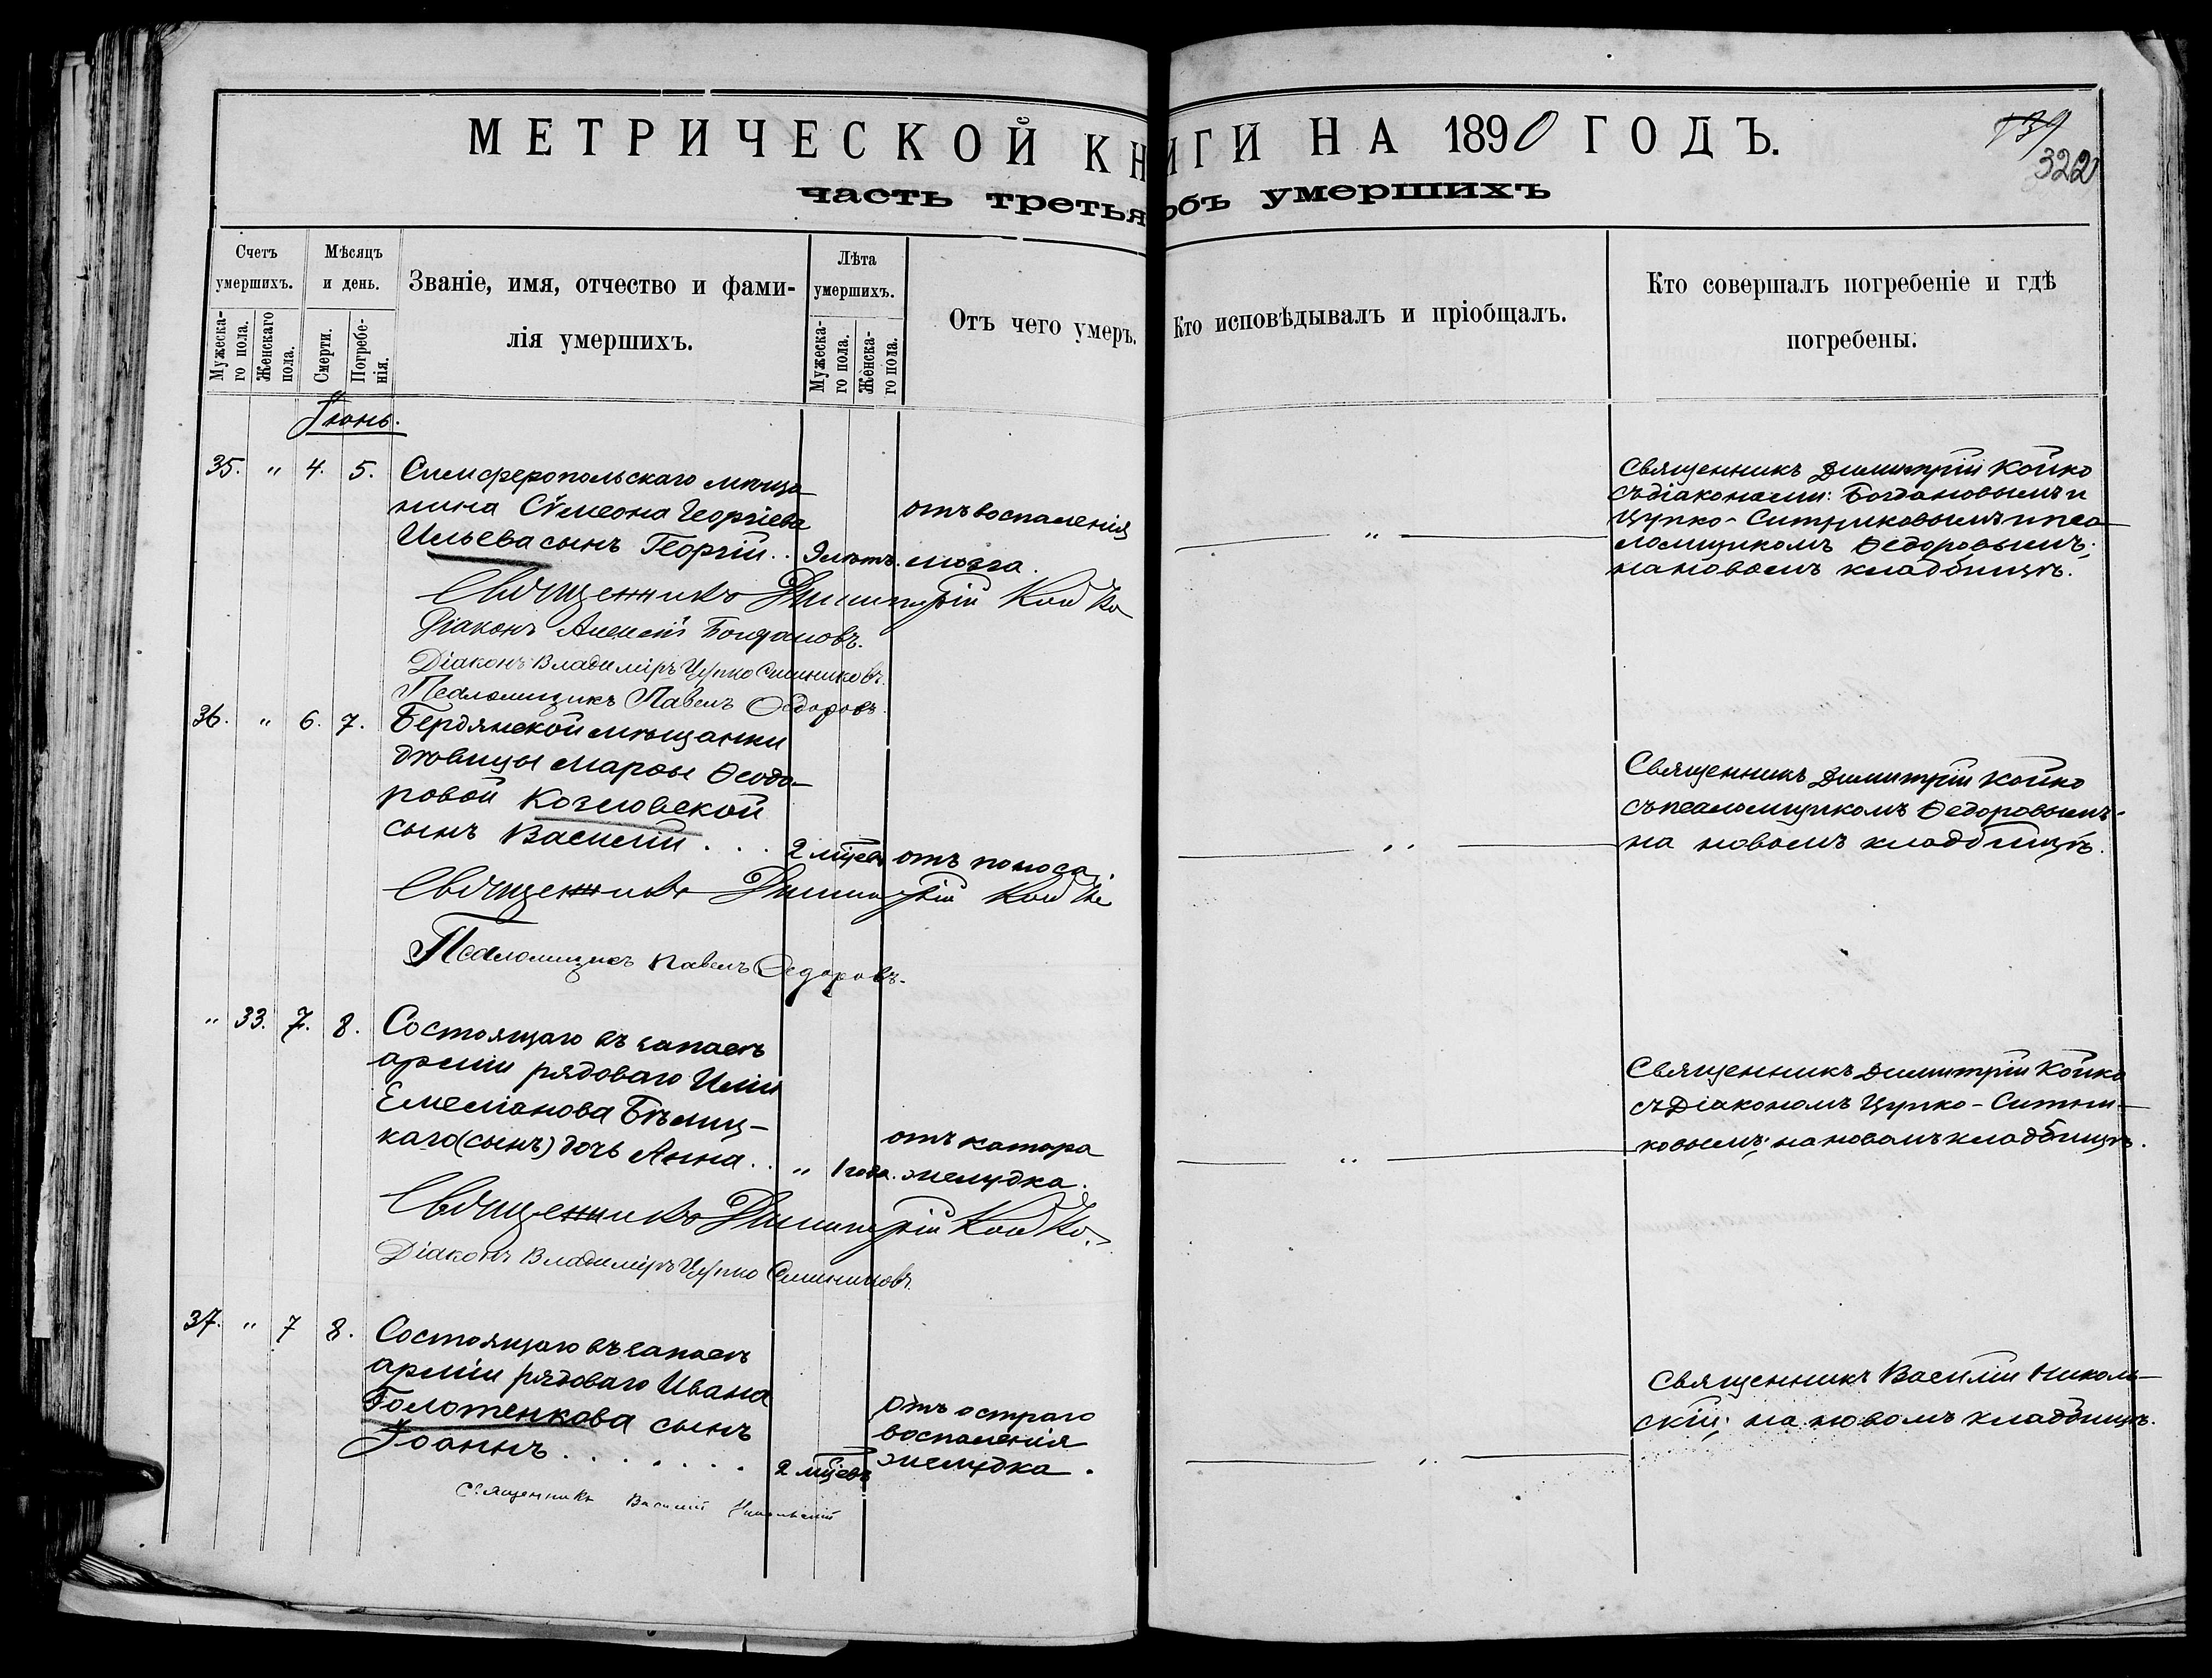 МЕТРИЧЕСКОЙ КНИГИ НА 1890 ГОДЪ.
139
322
часть третья объ умершихъ
Счетъ умершихъ.
Мужескаго пола.
Женскаго пола.
Мѣсяцъ и день.
Смерти.
Погребенія.
Званіе, имя, отчество и фами-
лія умершихъ.
Лѣта умершихъ.
Мужескаго пола.
Женскаго пола.
Отъ чего умеръ.
Кто исповѣдывалъ и пріобщалъ.
Кто совершалъ погребеніе и гдѣ
погребены.
Іюнь.
35. " 4. 5. Симферопольскаго мѣща-
нина Сѵмеона Георгіева
Ильева сынъ Георгій . . 9 лѣтъ.
отъ воспаленія
мозга.
"
Священникъ Димитрій Койко
съ діаконами: Богдановымъ и
Цупко-Ситниковымъ и пса-
ломщикомъ Ѳедоровымъ;
на новомъ кладбищѣ.
Священникъ Димитрій Койко
Діаконъ Алексій Богдановъ.
Діаконъ Владиміръ Цупко Ситниковъ.
Псаломщикъ Павелъ Ѳедоровъ.
36. " 6. 7. Бердянской мѣщанки
дѣвицы Марѳы Ѳеодо-
ровой Козловской
сынъ Василій . . . 2 мѣсцев
отъ поноса.
"
Священникъ Димитрій Койко
съ псаломщикомъ Ѳедоровымъ.
на новомъ кладбищѣ.
Священникъ Димитрій Койко
Псаломщикъ Павелъ Ѳедоровъ.
" 33. 7. 8. Состоящаго въ запасѣ
арміи рядоваго Иліи
Емеліанова Бѣлиц-
каго (сынъ) дочь Анна . . " 1 года.
отъ катара
желудка.
"
Священникъ Димитрій Койко
съ Діакономъ Цупко-Ситни-
ковымъ; на новомъ кладбищѣ.
Священникъ Димитрій Койко.
Діаконъ Владиміръ Цупко Ситниковъ.
37. " 7 8. Состоящаго въ запасѣ
арміи рядоваго Ивана
Болотенкова сынъ
Іоаннъ . . . . . . . 2 мѣсцевъ
отъ остраго
воспаленія
желудка.
"
Священникъ Василій Николь-
скій; на новомъ кладбищѣ.
Священникъ Василій Никольскій